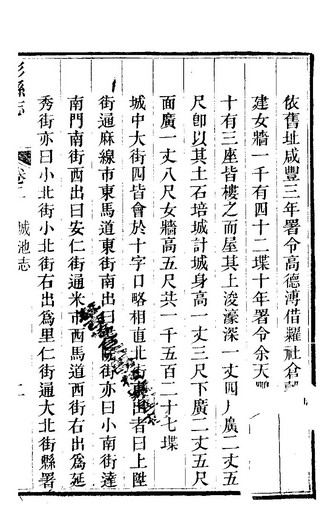 依舊址咸豐三年署令高德溥借糶社倉
建女牆一千有四十二堞十年署令余天
十有三座皆樓之而屋其上浚濠深一丈四尺廣二丈五
尺卽以其土石培城計城身高一丈三尺下廣二丈五尺
面廣一丈八尺女牆高五尺共一千五百二十七堞
城中大街四皆會於十字口略相直北街出者曰上陞
街通麻線市東馬道東街南出曰院街亦曰小南街達
南門南街西出曰安仁街通米市西馬道西街右出爲延
秀街亦曰小北街小北街右出爲里仁街通大北街縣署
彭縣志
卷二
城池志
二